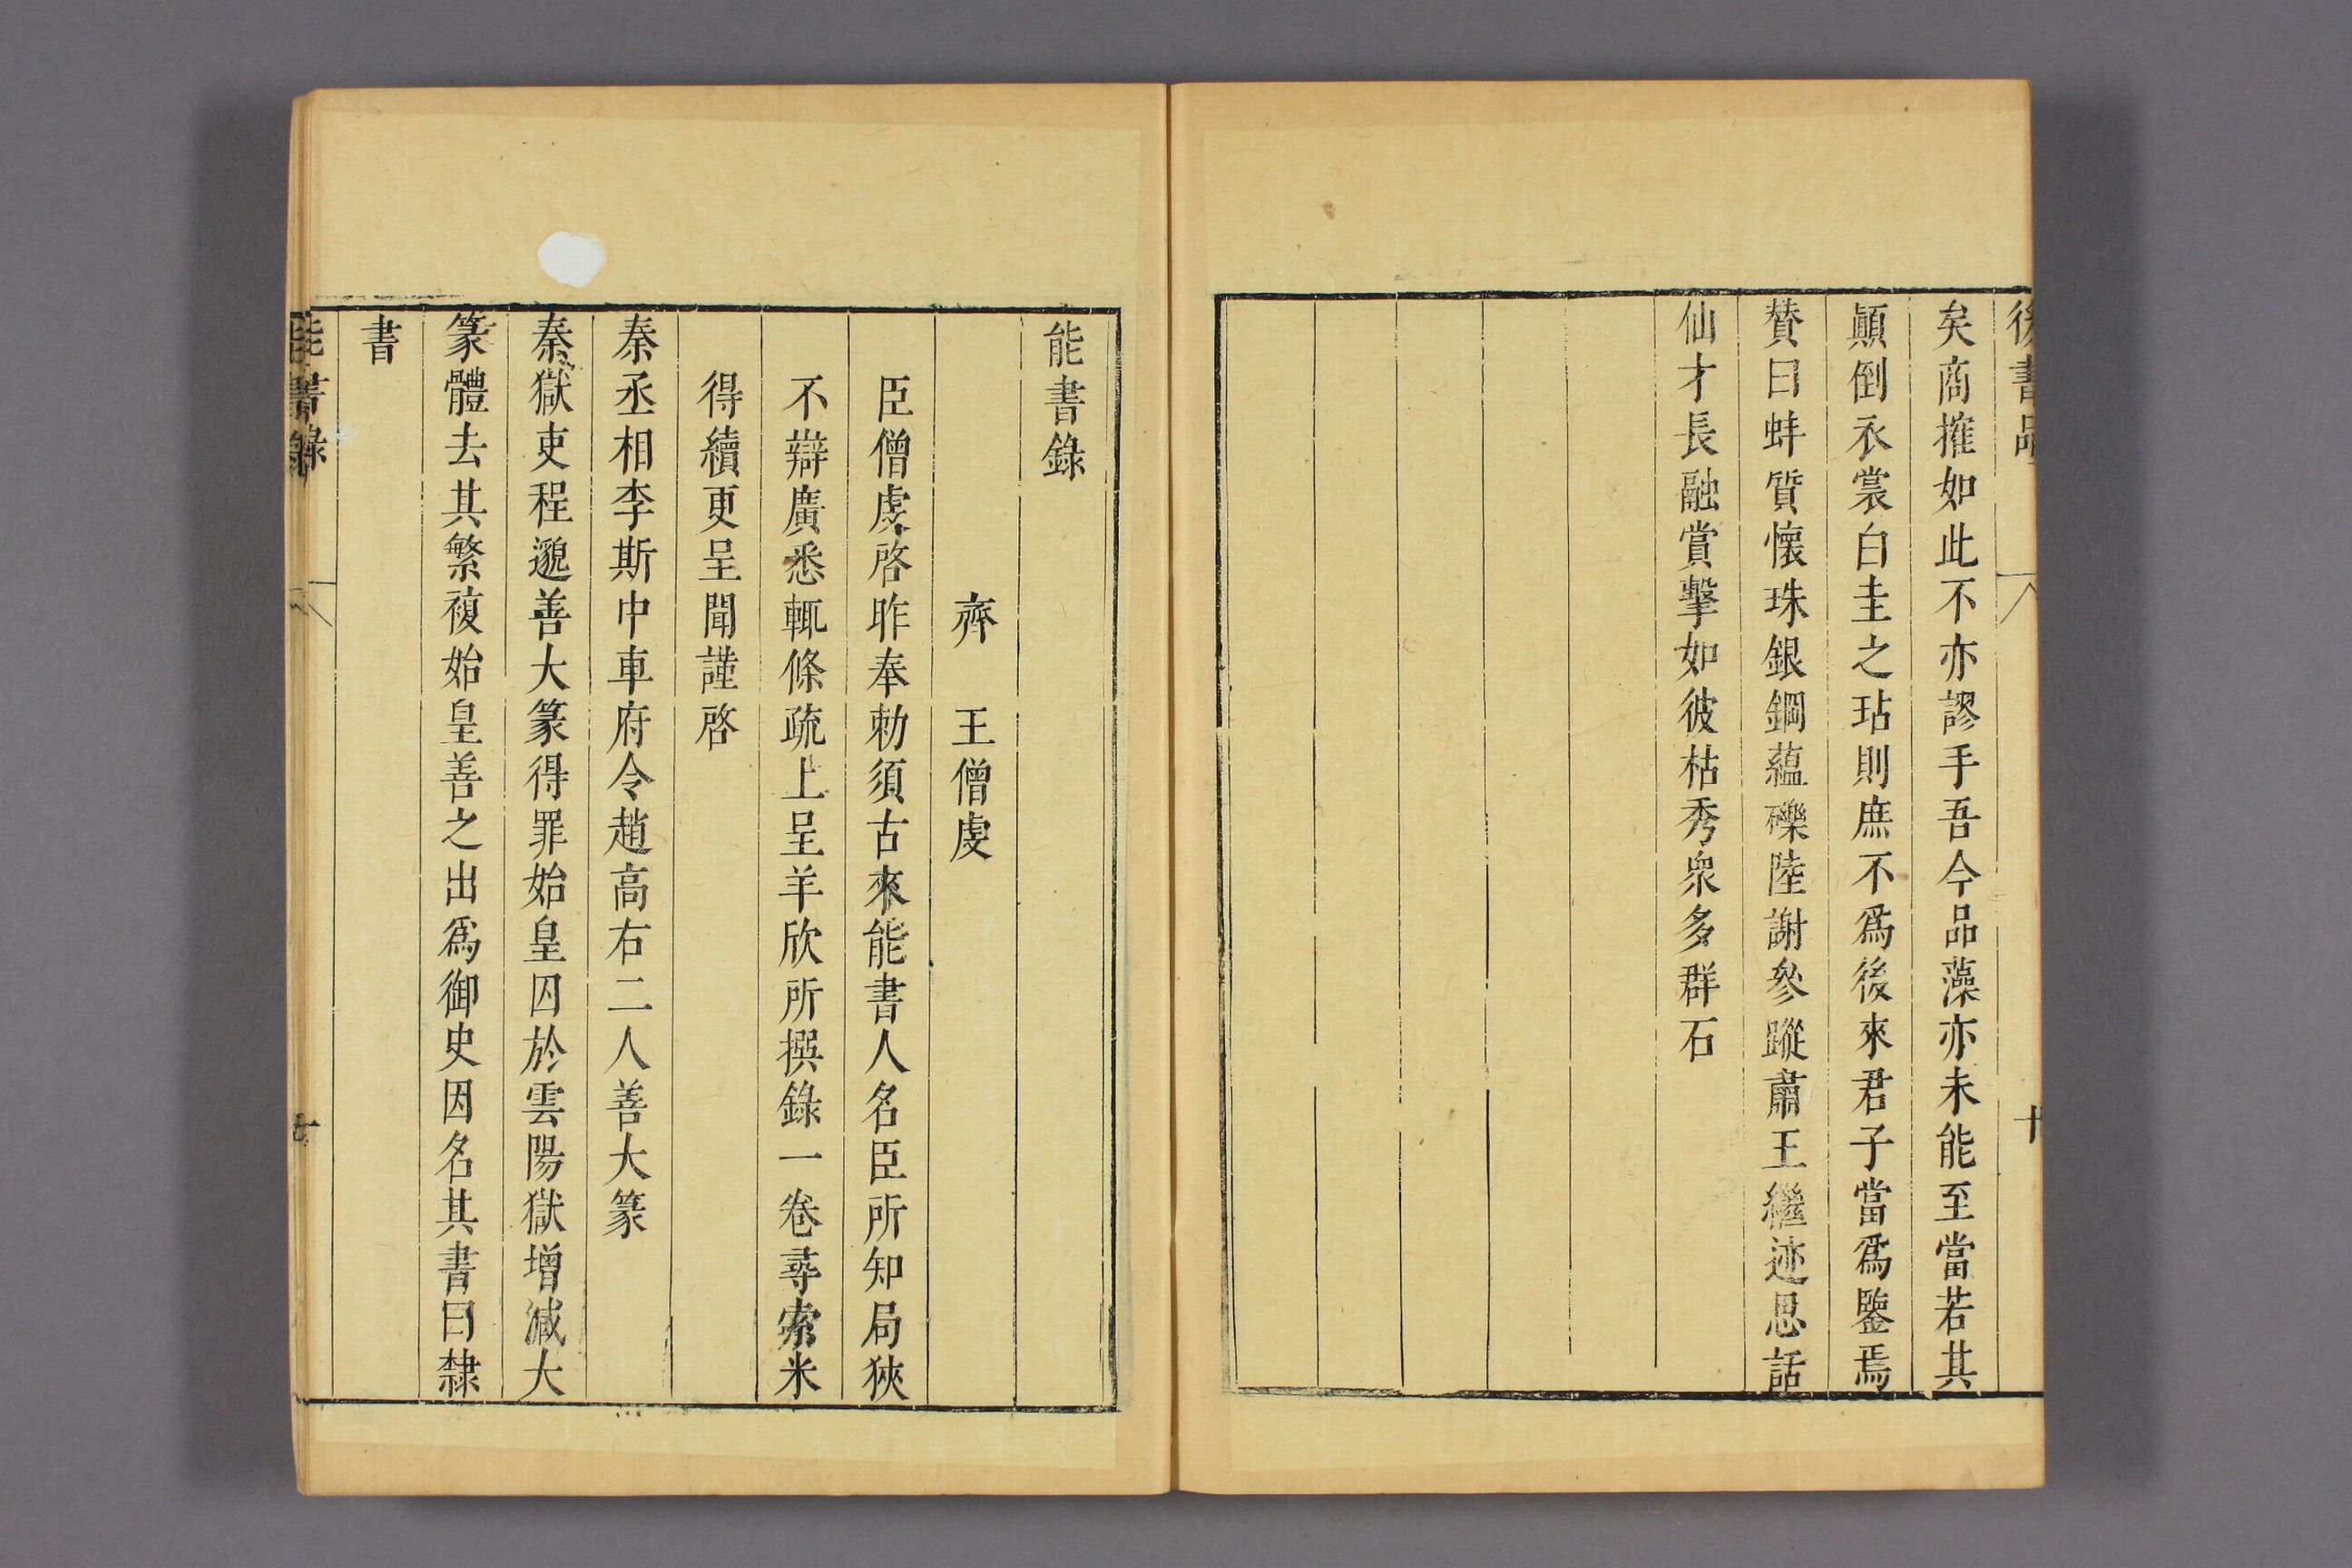 後書品
十
矣商搉如此不亦謬乎吾今品藻亦未能至當若其
顚倒衣裳白圭之玷則庶不爲後來君子當爲鑒焉
賛曰蚌質懷珠銀鋼蘊礫陸謝參蹤蕭王繼迹思話
仙才長融賞擊如彼枯秀衆多群石
能書錄
齊　王僧虔
臣僧虔啓昨奉勅須古來能書人名臣所知局狹
不辯廣悉輒條疏上呈羊欣所撰錄一卷尋索米
得續更呈聞謹啓
秦丞相李斯中車府令趙高右二人善大篆
秦獄吏程邈善大篆得罪始皇囚於雲陽獄增減大
篆體去其繁複始皇善之出爲御史因名其書曰隸
書
能書錄